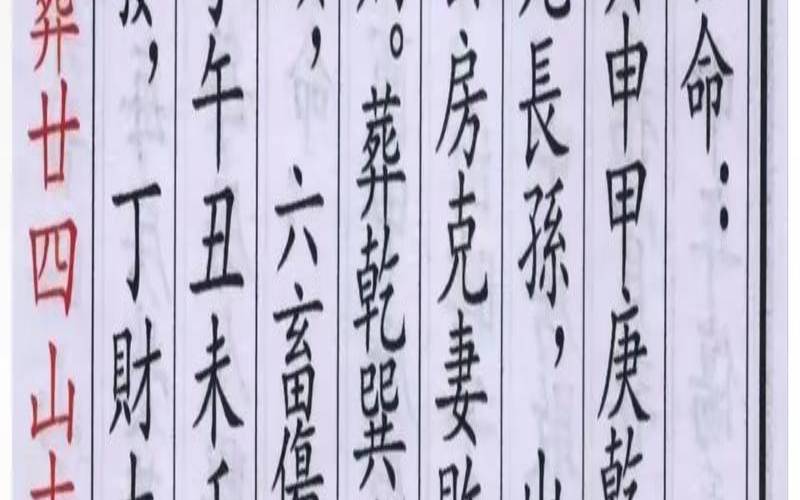 命：
申甲庚乾
長孫，
房克妻敗
。葬乾巽
，六畜傷
午丑未
，丁財
葬廿四山